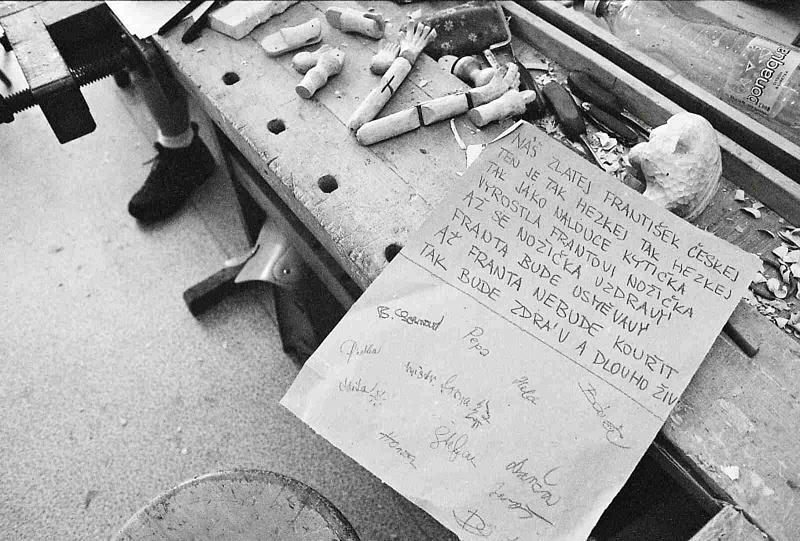 bonaqua
NÁŠ ZLATEJ FRANTIŠEK ČESKEJ
TEN JE TAK HEZKEJ TAK HEZKEJ
TAK JAKO NALOUCE KYTIČKA
VYROSTLA FRANTOVI NOŽIČKA
AŽ SE NOŽIČKA UZDRAVÝ
FRANTA BUDE USMĚVAVÝ
AŤ FRANTA NEBUDE KOUŘIT
TAK BUDE ZDRÁV A DLOUHO ŽIV
Pepa
Honza